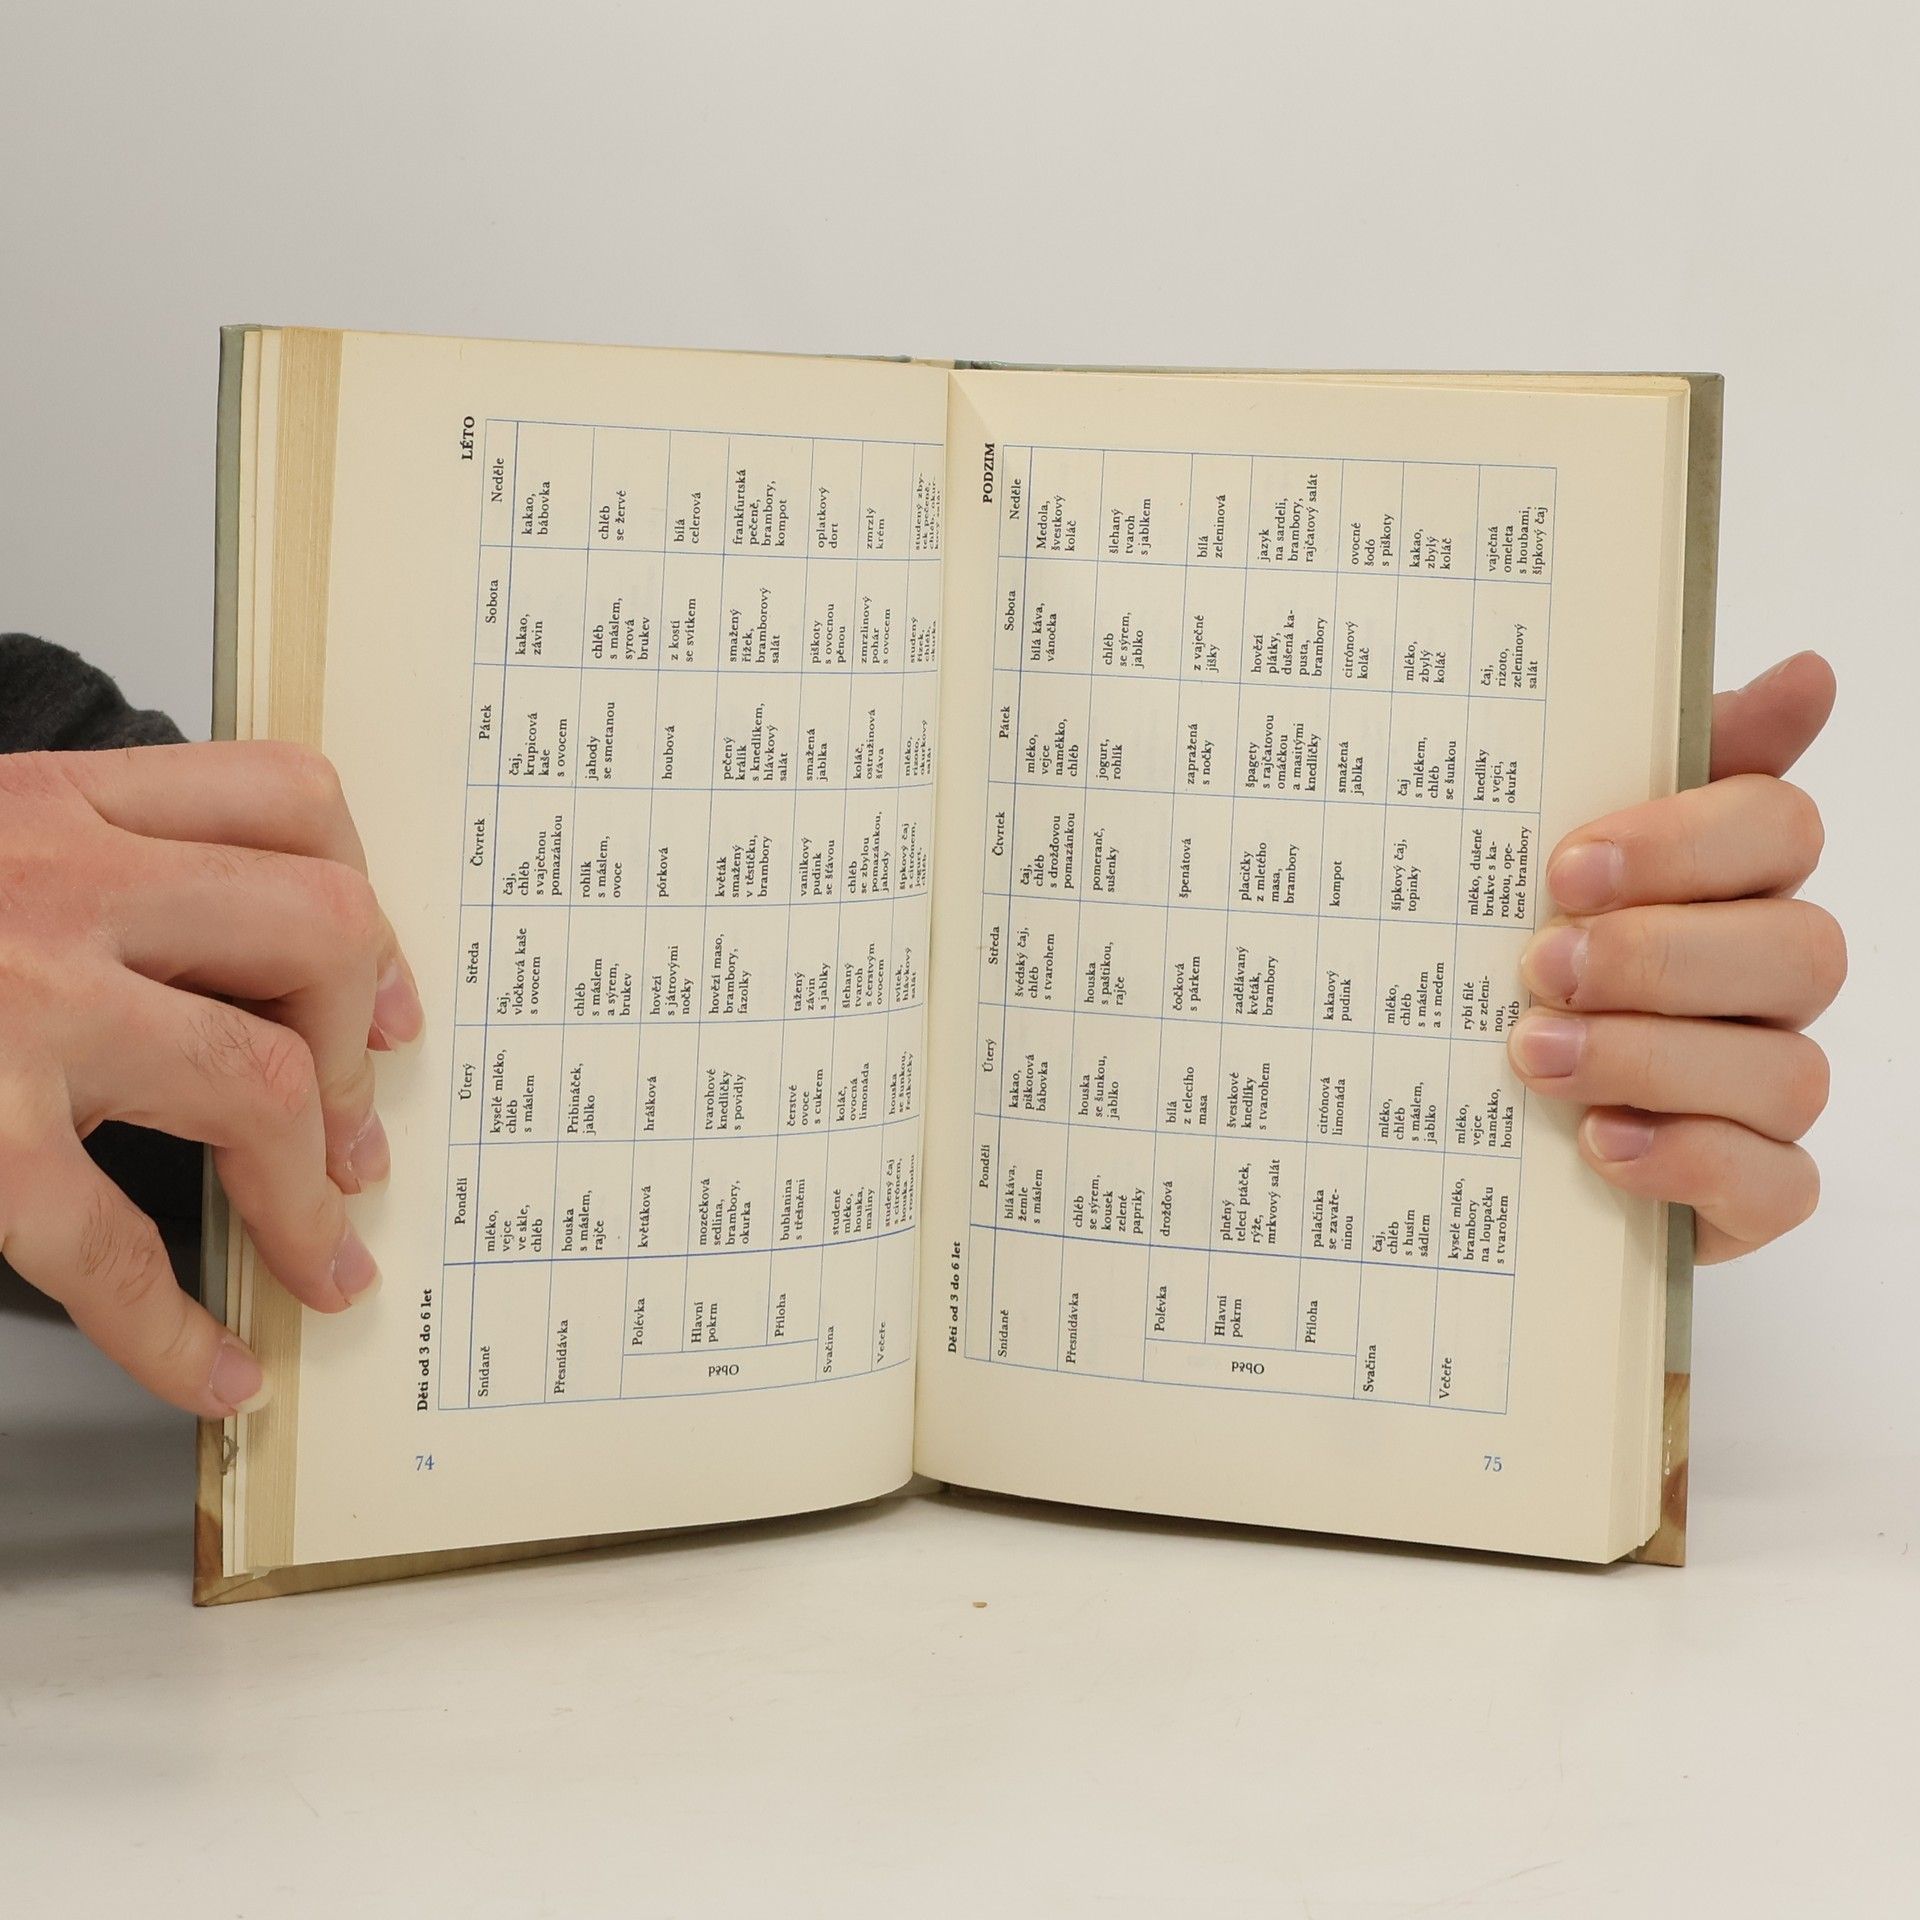 Děti od 3 do 6 let
LÉTO
Pondělí
Úterý
Středa
Čtvrtek
Pátek
Sobota
Neděle
Snídaně
mléko,
vejce
ve skle,
chléb
kyselé mléko,
chléb
s máslem
čaj,
vločková kaše
s ovocem
čaj,
chléb
s vaječnou
pomazánkou
čaj,
krupicová
kaše
s ovocem
kakao,
závin
kakao,
bábovka
Přesnídávka
houska
s máslem,
rajče
Pribináček,
jablko
chléb
s máslem
a sýrem,
brukev
rohlík
s máslem,
ovoce
jahody
se smetanou
chléb
s máslem,
syrová
brukev
chléb
se žervé
Oběd
Polévka
květáková
hrášková
hovězí
s játrovými
nočky
pórková
houbová
z kostí
se svítkem
bílá
celerová
Hlavní
pokrm
mozečková
sedlina,
brambory,
okurka
tvarohové
knedlíčky
s povidly
hovězí maso,
brambory,
fazolky
květák
smažený
v těstíčku,
brambory
pečený
králík
s knedlíkem,
hlávkový
salát
smažený
řízek,
bramborový
salát
frankfurtská
pečeně,
brambory,
kompot
Příloha
bublanina
s třešněmi
čerstvé
ovoce
s cukrem
tažený
závin
s jablky
vanilkový
pudink
se šťávou
smažená
jablka
piškoty
s ovocnou
pěnou
oplatkový
dort
Svačina
studené
mléko,
houska,
maliny
koláč,
ovocná
limonáda
šlehaný
tvaroh
s čerstvým
ovocem
chléb
se zbylou
pomazánkou,
jahody
koláč,
ostružinová
šťáva
zmrzlinový
pohár
s ovocem
zmrzlý
krém
Večeře
studený čaj
s citrónem,
houska
s rozhudou
houska
se šunkou,
ředkvičky
svítek,
hlávkový
salát
šípkový čaj
s citrónem,
jogurt,
chléb
mléko,
rizoto,
okurkový
salát
studený
řízek,
chléb,
okurka
studený zby-
tek pečeně,
chléb, okur-
kový salát
74
Děti od 3 do 6 let
PODZIM
Pondělí
Úterý
Středa
Čtvrtek
Pátek
Sobota
Neděle
Snídaně
bílá káva,
žemle
s máslem
kakao,
piškotová
bábovka
švédský čaj,
chléb
s tvarohem
čaj,
chléb
s drožďovou
pomazánkou
mléko,
vejce
naměkko,
chléb
bílá káva,
vánočka
Medola,
švestkový
koláč
Přesnídávka
chléb
se sýrem,
kousek
zelené
papriky
houska
se šunkou,
jablko
houska
s paštikou,
rajče
pomeranč,
sušenky
jogurt,
rohlík
chléb
se sýrem,
jablko
šlehaný
tvaroh
s jablkem
Oběd
Polévka
drožďová
bílá
z telecího
masa
čočková
s párkem
špenátová
zapražená
s nočky
z vaječné
jíšky
bílá
zeleninová
Hlavní
pokrm
plněný
telecí ptáček,
rýže,
mrkvový salát
švestkové
knedlíky
s tvarohem
zadělávaný
květák,
brambory
placičky
z mletého
masa,
brambory
špagety
s rajčatovou
omáčkou
a masitými
knedlíčky
hovězí
plátky,
dušená ka-
pusta,
brambory
jazyk
na sardeli,
brambory,
rajčatový salát
Příloha
palačinka
se zavaře-
ninou
citrónová
limonáda
kakaový
pudink
kompot
smažená
jablka
citrónový
koláč
ovocné
šodó
s piškoty
Svačina
čaj,
chléb
s husím
sádlem
mléko,
chléb
s máslem,
jablko
mléko,
chléb
s máslem
a s medem
šípkový čaj,
topinky
čaj
s mlékem,
chléb
se šunkou
mléko,
zbylý
koláč
kakao,
zbylý
koláč
Večeře
kyselé mléko,
brambory
na loupačku
s tvarohem
mléko,
vejce
naměkko,
houska
rybí filé
se zeleni-
nou,
chléb
mléko, dušené
brukve s ka-
rotkou, ope-
čené brambory
knedlíky
s vejci,
okurka
čaj,
rizoto,
zeleninový
salát
vaječná
omeleta
s houbami,
šípkový čaj
75